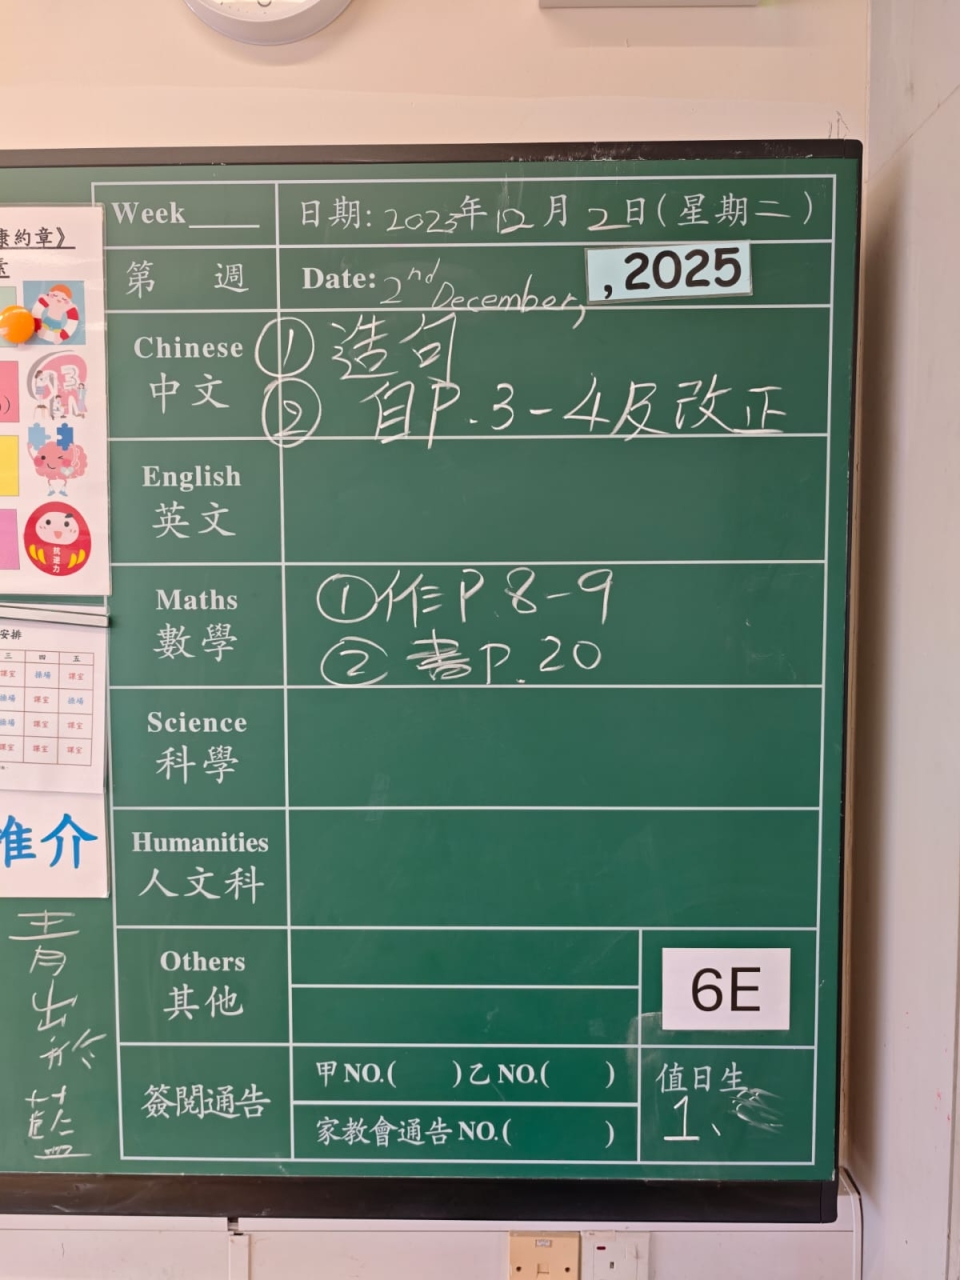 康約章》
Week____ 日期: 2023年12月2日(星期二)
第 週 Date: 2nd December, , 2025
Chinese ① 造句
中文 ② 自P.3-4及改正
English
英文
Maths ①作P.8-9
數學 ② 書P.20
Science
科學
Humanities
人文科
Others
其他
6E
簽閱通告 甲NO.( )乙NO.( )
家教會通告NO.( )
值日生
1、
抗逆力
安排
三 四 五
課室 操場 課室
操場 課室 操場
操場 課室 課室
課室 課室 課室
推介
青出於藍